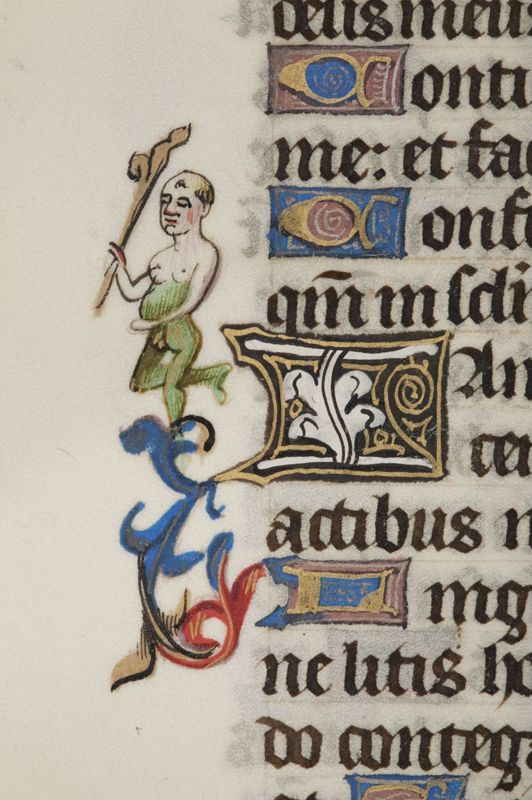 deus meus
Confi
me: et fac
Confi
qm̄ in scli
IAm
cem
actibus n
Ling
ne litis ho
do conteg